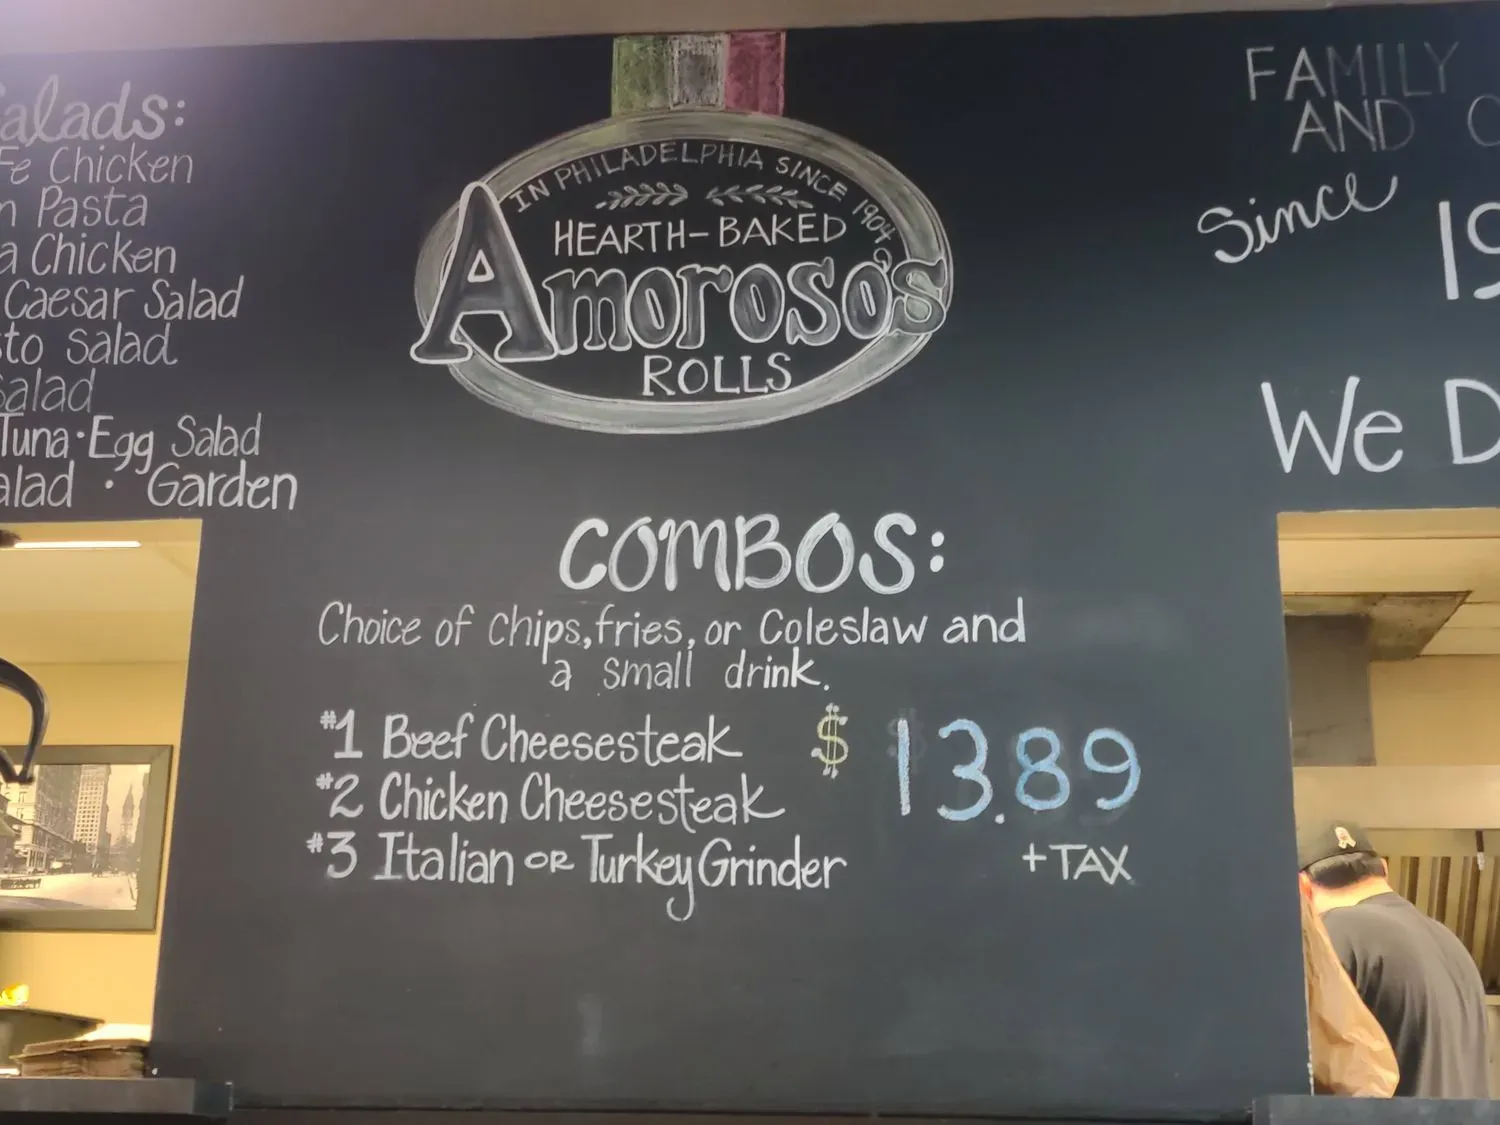 Salads:
Fe Chicken
Pasta
Chicken
Caesar Salad
Salad
Salad
Tuna • Egg Salad
Salad • Garden
IN PHILADELPHIA SINCE 1904
HEARTH-BAKED
Amoroso's
ROLLS
FAMILY
AND
Since
We
COMBOS:
Choice of chips, fries, or Coleslaw and
a small drink.
#1 Beef Cheesesteak $ 13.89
#2 Chicken Cheesesteak
#3 Italian OR Turkey Grinder +TAX